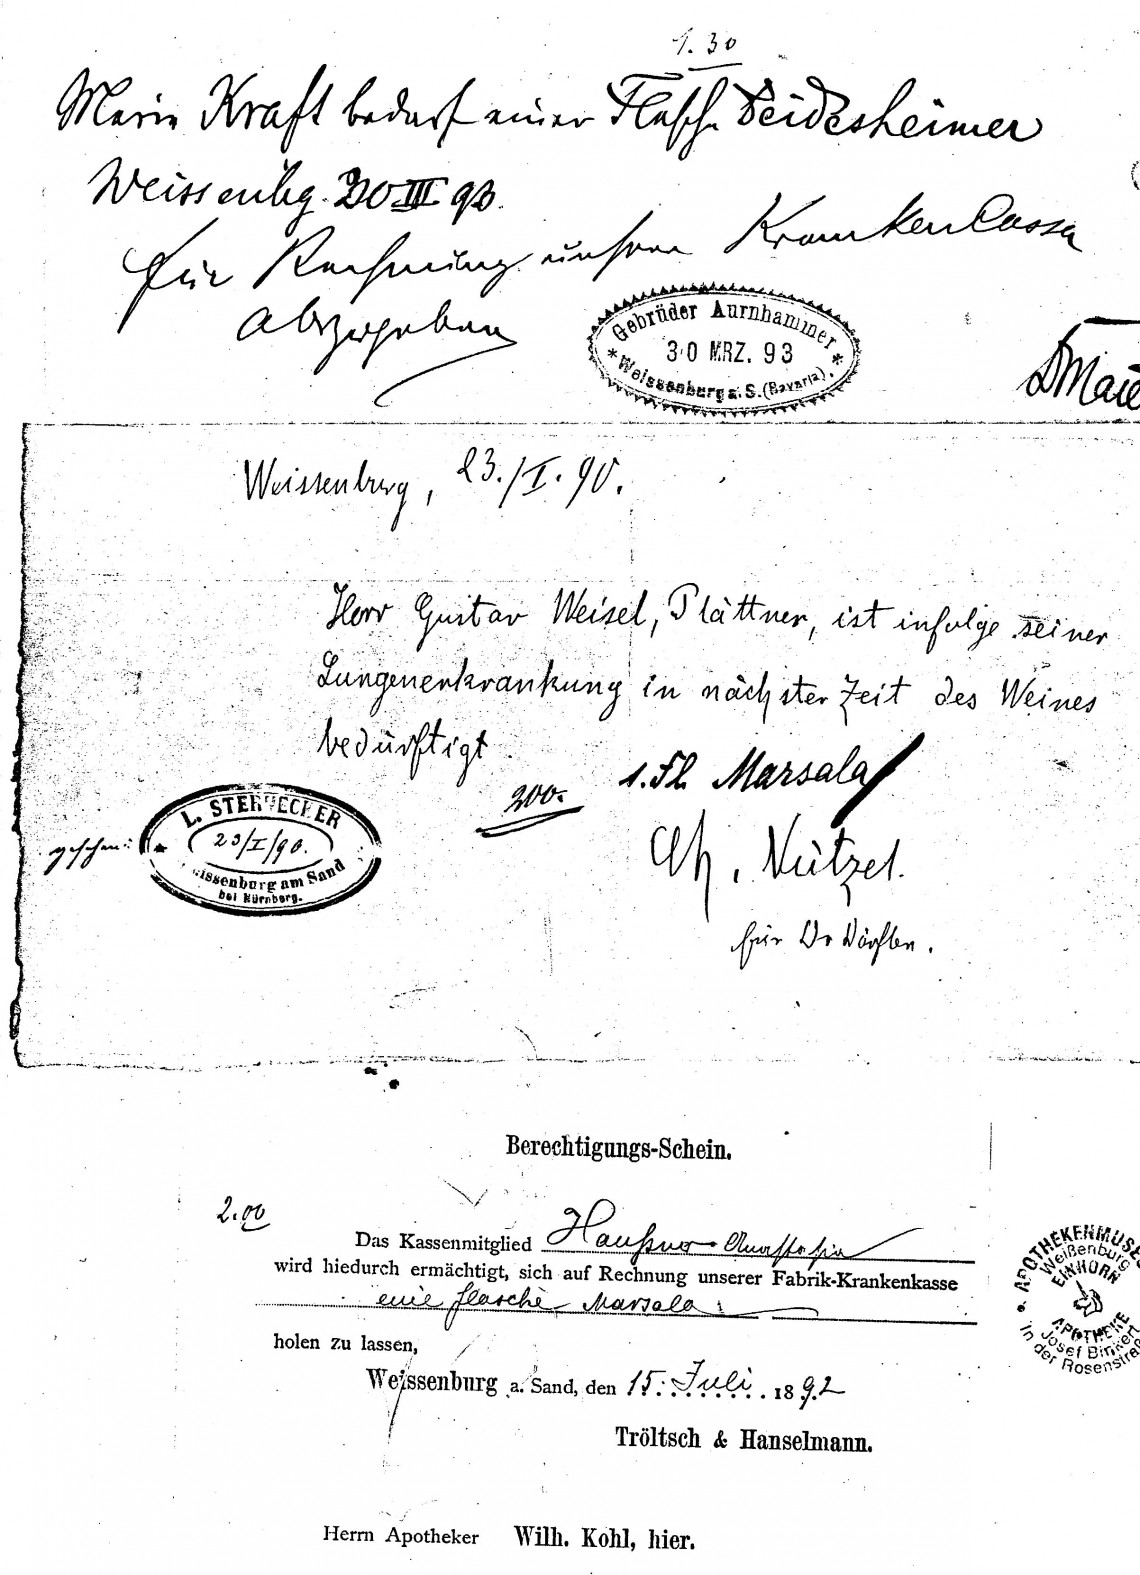 1.30
Marie Kraft bedarf einer Flasche Deidesheimer
Weissenbg. 30 III 93.
für Rechnung unserer Krankencassa
abzugeben
Gebrüder Aurnhammer
30 MRZ. 93
Weissenburg a. S. (Bavaria).
Weissenburg, 23./I. 90.
Herr Gustav Weisel, Plättner, ist infolge seiner
Lungenerkrankung in nächster Zeit des Weines
bedürftigt
1. Fl. Marsala
200.
gesehen:
L. STERNECKER
23/I/90.
Weissenburg am Sand
bei Nürnberg.
Ch. Nützel.
für Dr Dörfler.
Berechtigungs-Schein.
2.00
Das Kassenmitglied Haußner Anastasia
wird hiedurch ermächtigt, sich auf Rechnung unserer Fabrik-Krankenkasse
eine Flasche Marsala
holen zu lassen,
Weissenburg a. Sand, den 15. Juli 1892
Tröltsch & Hanselmann.
Herrn Apotheker Wilh. Kohl, hier.
APOTHEKENMUSE
Weißenburg
EINHORN
APOTHEKE
Josef Binkert
in der Rosenstraß